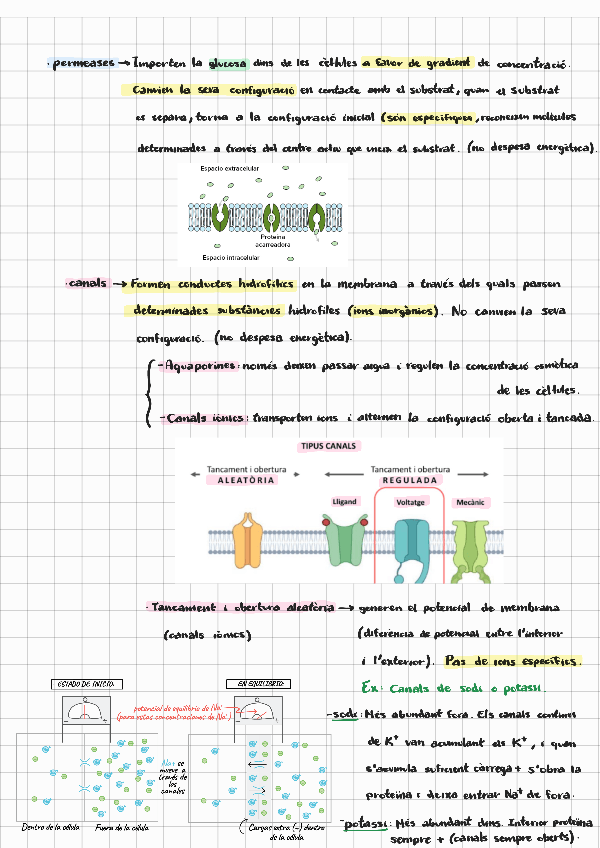 · permeases → Importen la glucosa dins de les cèl·lules a favor de gradient de concentració.
Canvien la seva configuració en contacte amb el substrat, quan el substrat
es separa, torna a la configuració inicial (són específiques, reconeixen molècules
determinades a través del centre actiu que uneix el substrat. (no despesa energètica).
Espacio extracelular
Proteína
acarreadora
Espacio intracelular
· canals → Formen conductes hidrofílics en la membrana a través dels quals passen
determinades substàncies hidròfiles (ions inorgànics). No canvien la seva
configuració. (no despesa energètica).
- Aquaporines: només deixen passar aigua i regulen la concentració osmòtica
de les cèl·lules.
- Canals iònics: transporten ions i alternen la configuració oberta i tancada.
TIPUS CANALS
Tancament i obertura
ALEATÒRIA
Tancament i obertura
REGULADA
Lligand
Voltatge
Mecànic
· Tancament i obertura aleatòria → generen el potencial de membrana
(canals iònics)
(diferència de potencial entre l'interior
i l'exterior). Pas de ions específics.
Ex: Canals de sodi o potassi.
ESTADO DE INICIO:
EN EQUILIBRIO:
potencial de equilibrio de Na+
(para estas concentraciones de Na+)
Na+ se
mueve a
través de
los
canales
Dentro de la célula
Fuera de la célula
Cargas extra (-) dentro
de la célula
- sodi: Més abundant fora. Els canals continus
de K+ van acumulant els K+, i quan
s'acumula suficient càrrega + s'obra la
proteïna i deixa entrar Na+ de fora.
- potassi: Més abundant dins. Interior proteïna
sempre + (canals sempre oberts).